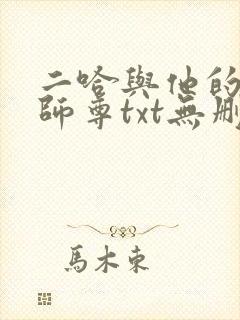 二哈與他的
師尊txt無刪
馬木東